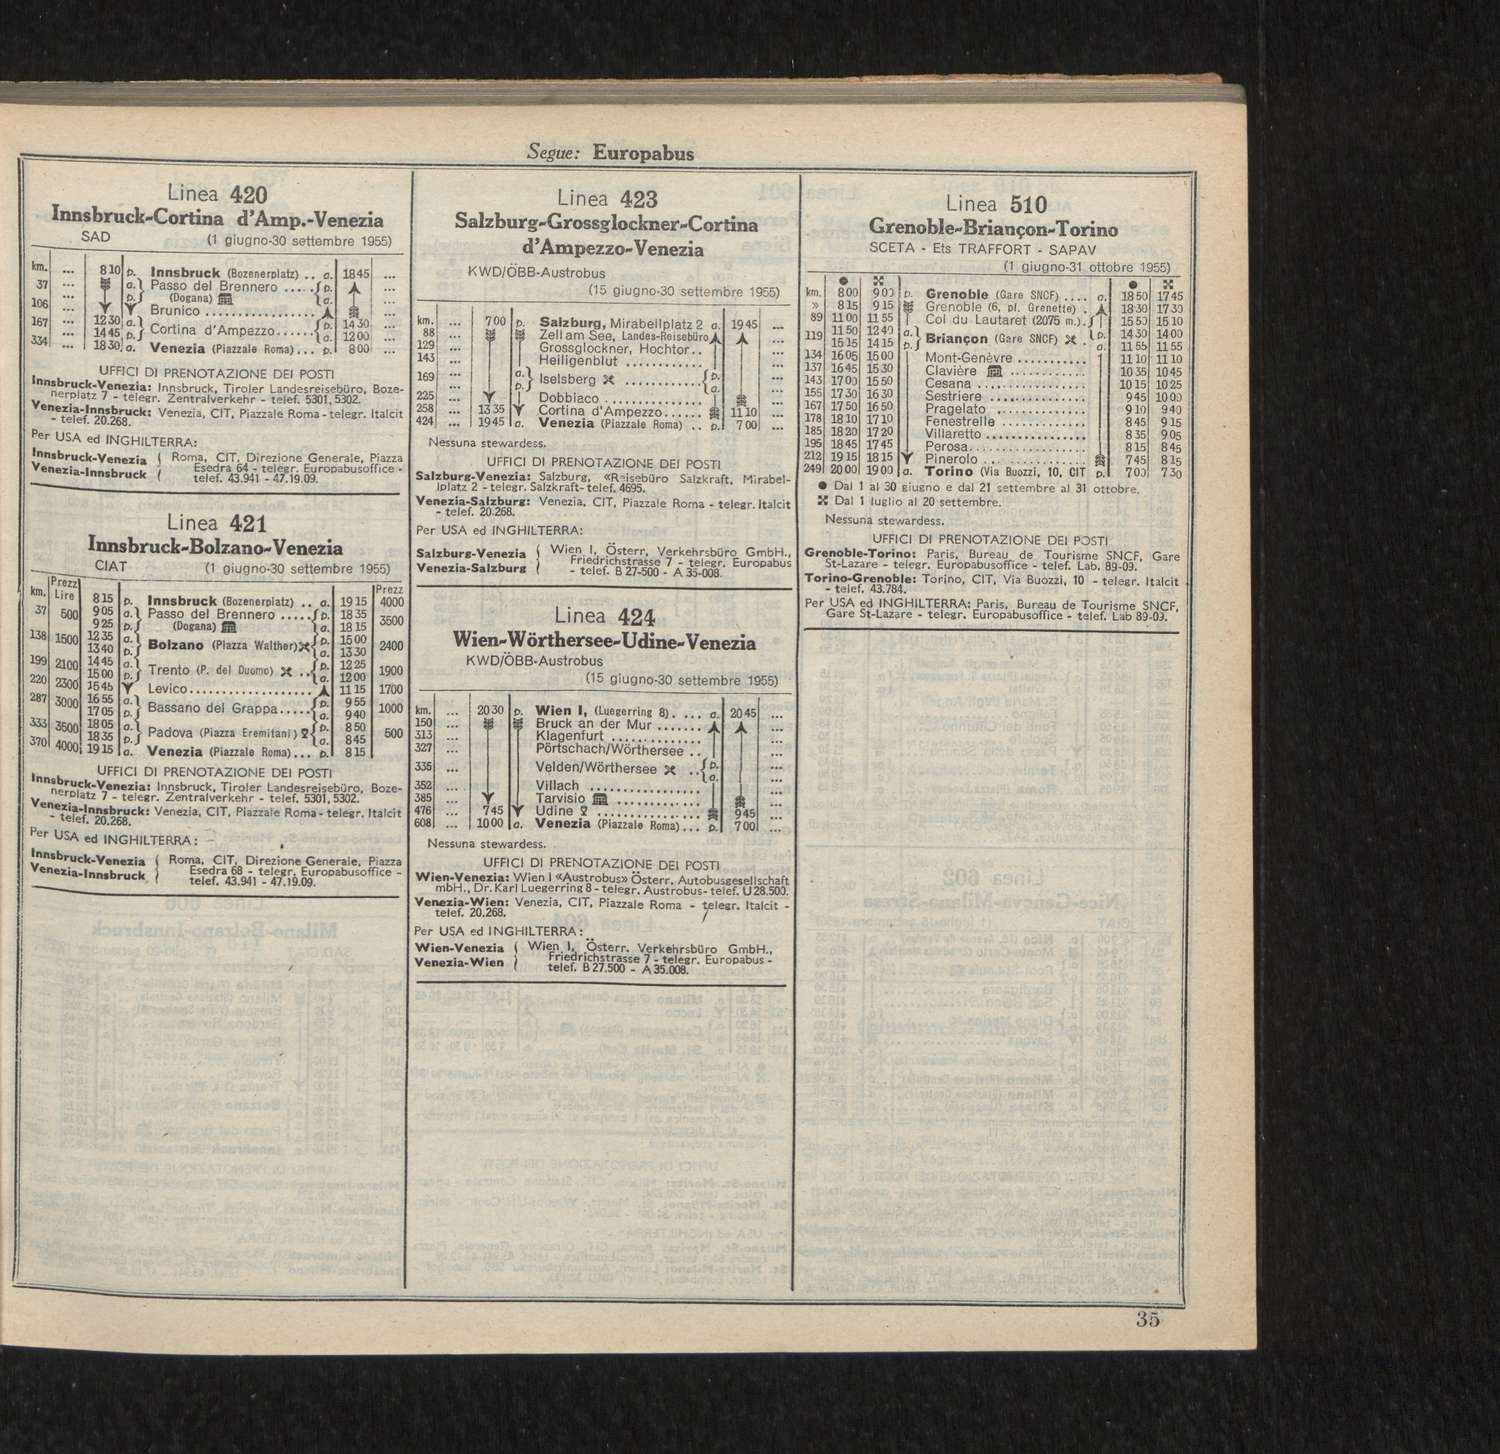 Segue: Europabus
Linea 420
Innsbruck-Cortina d'Amp.-Venezia
SAD (1 giugno-30 settembre 1955)
km. ... 8 10 p. Innsbruck (Bozenerplatz) .. a. 18 45 ...
37 ... a. Passo del Brennero ..... p. ...
... p. (Dogana) a. ...
106 ... Brunico ............. ...
167 ... 12 30 a. Cortina d'Ampezzo...... p. 14 30 ...
... 14 45 p. a. 12 00 ...
334 ... 18 30 a. Venezia (Piazzale Roma)... p. 8 00 ...
UFFICI DI PRENOTAZIONE DEI POSTI
Innsbruck-Venezia: Innsbruck, Tiroler Landesreisebüro, Boze-
nerplatz 7 - telegr. Zentralverkehr - telef. 5301, 5302.
Venezia-Innsbruck: Venezia, CIT, Piazzale Roma - telegr. Italcit
- telef. 20.268.
Per USA ed INGHILTERRA:
Innsbruck-Venezia
Venezia-Innsbruck
Roma, CIT, Direzione Generale, Piazza
Esedra 64 - telegr. Europabusoffice -
telef. 43.941 - 47.19.09.
Linea 421
Innsbruck-Bolzano-Venezia
CIAT (1 giugno-30 settembre 1955)
km. Prezz Lire 8 15 p. Innsbruck (Bozenerplatz) .. a. 19 15 Prezz 4000
37 500 9 05 a. Passo del Brennero ..... p. 18 35 3500
9 25 p. (Dogana) a. 18 15
138 1500 12 35 a. Bolzano (Piazza Walther) p. 15 00 2400
13 40 p. a. 13 30
199 2100 14 45 a. Trento (P. del Duomo) .. p. 12 25 1900
15 00 p. a. 12 00
220 2300 15 45 Levico................... 11 15 1700
287 3000 16 55 a. Bassano del Grappa..... p. 9 55 1000
17 05 p. a. 9 40
333 3500 18 05 a. Padova (Piazza Eremitani) p. 8 50 500
18 35 p. a. 8 45
370 4000 19 15 a. Venezia (Piazzale Roma)... p. 8 15
UFFICI DI PRENOTAZIONE DEI POSTI
Innsbruck-Venezia: Innsbruck, Tiroler Landesreisebüro, Boze-
nerplatz 7 - telegr. Zentralverkehr - telef. 5301, 5302.
Venezia-Innsbruck: Venezia, CIT, Piazzale Roma - telegr. Italcit
- telef. 20.268.
Per USA ed INGHILTERRA:
Innsbruck-Venezia
Venezia-Innsbruck
Roma, CIT, Direzione Generale, Piazza
Esedra 68 - telegr. Europabusoffice -
telef. 43.941 - 47.19.09.
Linea 423
Salzburg-Grossglockner-Cortina
d'Ampezzo-Venezia
KWD/ÖBB-Austrobus
(15 giugno-30 settembre 1955)
km. ... 7 00 p. Salzburg, Mirabellplatz 2 a. 19 45 ...
88 ... Zell am See, Landes-Reisebüro ...
129 ... Grossglockner, Hochtor.. ...
143 ... Heiligenblut ........... ...
169 ... a. Iselsberg ........... p. ...
p. a.
225 ... Dobbiaco ............. ...
258 ... 13 35 Cortina d'Ampezzo...... 11 10 ...
424 ... 19 45 a. Venezia (Piazzale Roma) .. p. 7 00 ...
Nessuna stewardess.
UFFICI DI PRENOTAZIONE DEI POSTI
Salzburg-Venezia: Salzburg, «Reisebüro Salzkraft, Mirabel-
lplatz 2 - telegr. Salzkraft- telef. 4695.
Venezia-Salzburg: Venezia, CIT, Piazzale Roma - telegr. Italcit
- telef. 20.268.
Per USA ed INGHILTERRA:
Salzburg-Venezia
Venezia-Salzburg
Wien I, Österr. Verkehrsbüro GmbH.,
Friedrichstrasse 7 - telegr. Europabus
- telef. B 27-500 - A 35-008.
Linea 424
Wien-Wörthersee-Udine-Venezia
KWD/ÖBB-Austrobus
(15 giugno-30 settembre 1955)
km. ... 20 30 p. Wien I, (Luegerring 8). ... a. 20 45 ...
150 ... Bruck an der Mur ....... ...
313 ... Klagenfurt ............. ...
327 ... Pörtschach/Wörthersee .. ...
335 ... Velden/Wörthersee .. p. ...
a.
352 ... Villach ................ ...
385 ... Tarvisio ............ ...
476 ... 7 45 Udine ............... 9 45 ...
608 ... 10 00 a. Venezia (Piazzale Roma)... p. 7 00 ...
Nessuna stewardess.
UFFICI DI PRENOTAZIONE DEI POSTI
Wien-Venezia: Wien I «Austrobus» Österr. Autobusgesellschaft
mbH., Dr. Karl Luegerring 8 - telegr. Austrobus- telef. U 28.500.
Venezia-Wien: Venezia, CIT, Piazzale Roma - telegr. Italcit -
telef. 20.268.
Per USA ed INGHILTERRA:
Wien-Venezia
Venezia-Wien
Wien I, Österr. Verkehrsbüro GmbH.,
Friedrichstrasse 7 - telegr. Europabus -
telef. B 27.500 - A 35.008.
Linea 510
Grenoble-Briançon-Torino
SCETA - Ets TRAFFORT - SAPAV
(1 giugno-31 ottobre 1955)
km. 8 00 9 00 p. Grenoble (Gare SNCF) .... a. 18 50 17 45
» 8 15 9 15 Grenoble (6, pl. Grenette) . 18 30 17 30
89 11 00 11 55 Col du Lautaret (2075 m.). 15 50 15 10
119 11 50 12 40 a. Briançon (Gare SNCF) . p. 14 30 14 00
15 15 14 15 p. a. 11 55 11 55
134 16 05 15 00 Mont-Genèvre ........... 11 10 11 10
137 16 45 15 30 Clavière ............ 10 35 10 45
143 17 00 15 50 Cesana ................. 10 15 10 25
155 17 30 16 30 Sestriere .............. 9 45 10 00
167 17 50 16 50 Pragelato .............. 9 10 9 40
178 18 10 17 10 Fenestrelle ............ 8 45 9 15
185 18 20 17 20 Villaretto ............. 8 35 9 05
195 18 45 17 45 Perosa.................. 8 15 8 45
212 19 15 18 15 Pinerolo .. ............ 7 45 8 15
249 20 00 19 00 a. Torino (Via Buozzi, 10, CIT p. 7 00 7 30
● Dal 1 al 30 giugno e dal 21 settembre al 31 ottobre.
Dal 1 luglio al 20 settembre.
Nessuna stewardess.
UFFICI DI PRENOTAZIONE DEI POSTI
Grenoble-Torino: Paris, Bureau de Tourisme SNCF, Gare
St-Lazare - telegr. Europabusoffice - telef. Lab. 89-09.
Torino-Grenoble: Torino, CIT, Via Buozzi, 10 - telegr. Italcit
- telef. 43.784.
Per USA ed INGHILTERRA: Paris, Bureau de Tourisme SNCF,
Gare St-Lazare - telegr. Europabusoffice - telef. Lab 89-09.
35